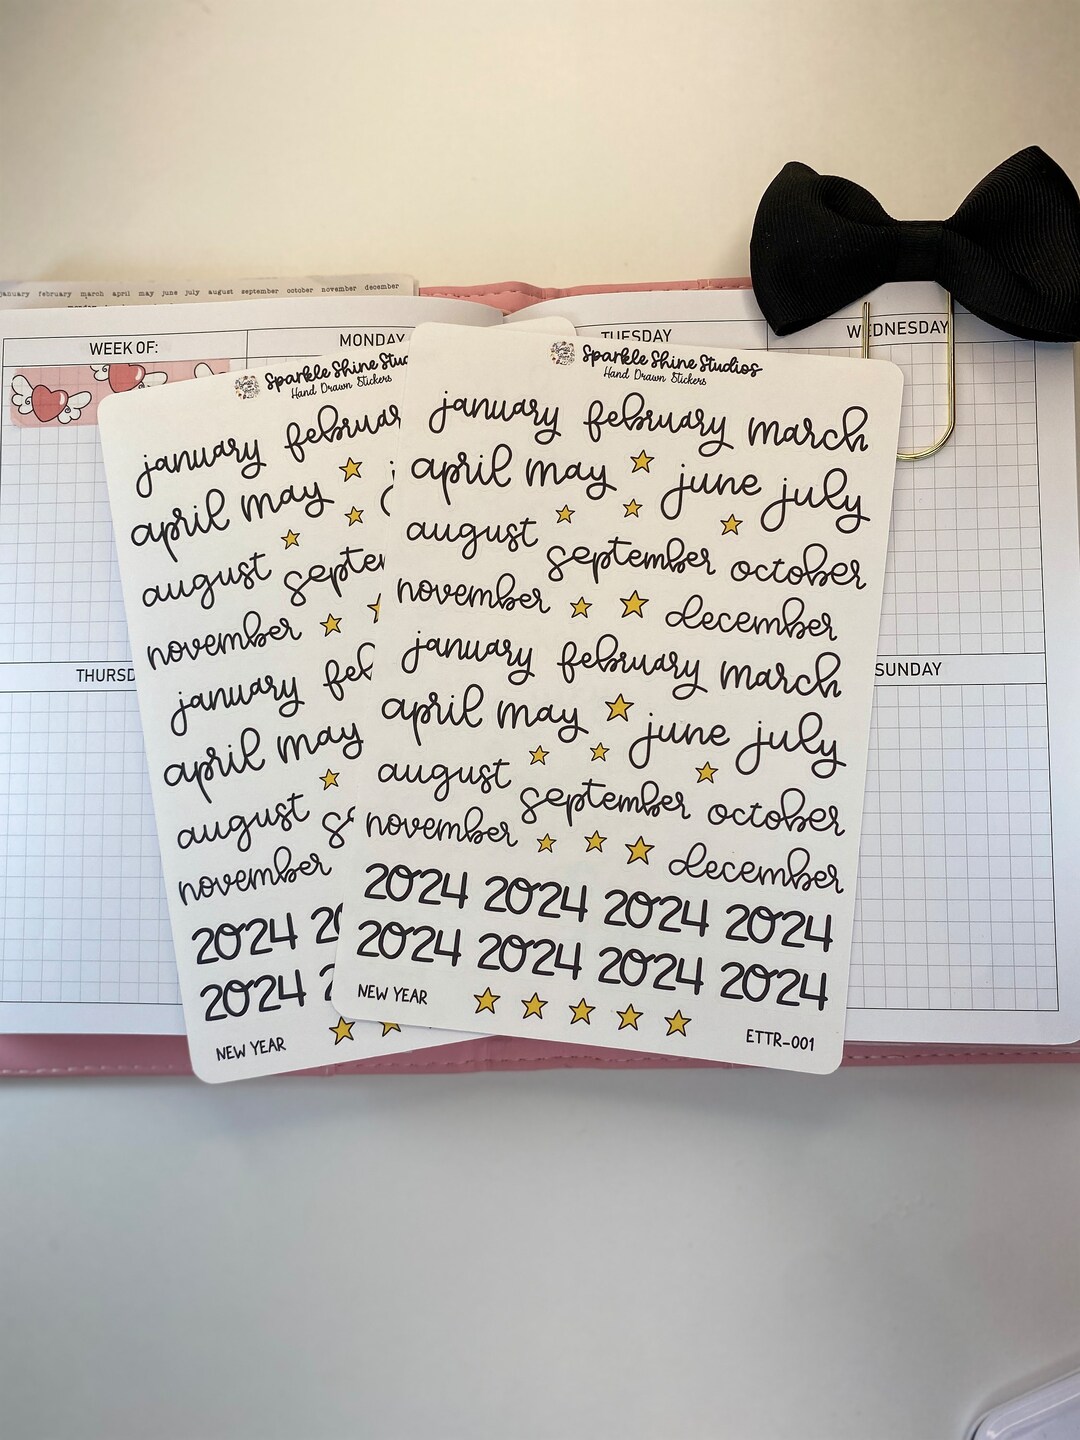 january february march april may june july august september october november december
WEEK OF:
MONDAY
TUESDAY
WEDNESDAY
THURSD
SUNDAY
Sparkle Shine Stud
Hand Drawn Stickers
january februar
april may
august septe
november
january feb
april may
august se
november
2024 20
2024 2
NEW YEAR
Sparkle Shine Studios
Hand Drawn Stickers
january february march
april may june july
august september october
november december
january february march
april may june july
august september october
november december
2024 2024 2024 2024
2024 2024 2024 2024
NEW YEAR
ETTR-001